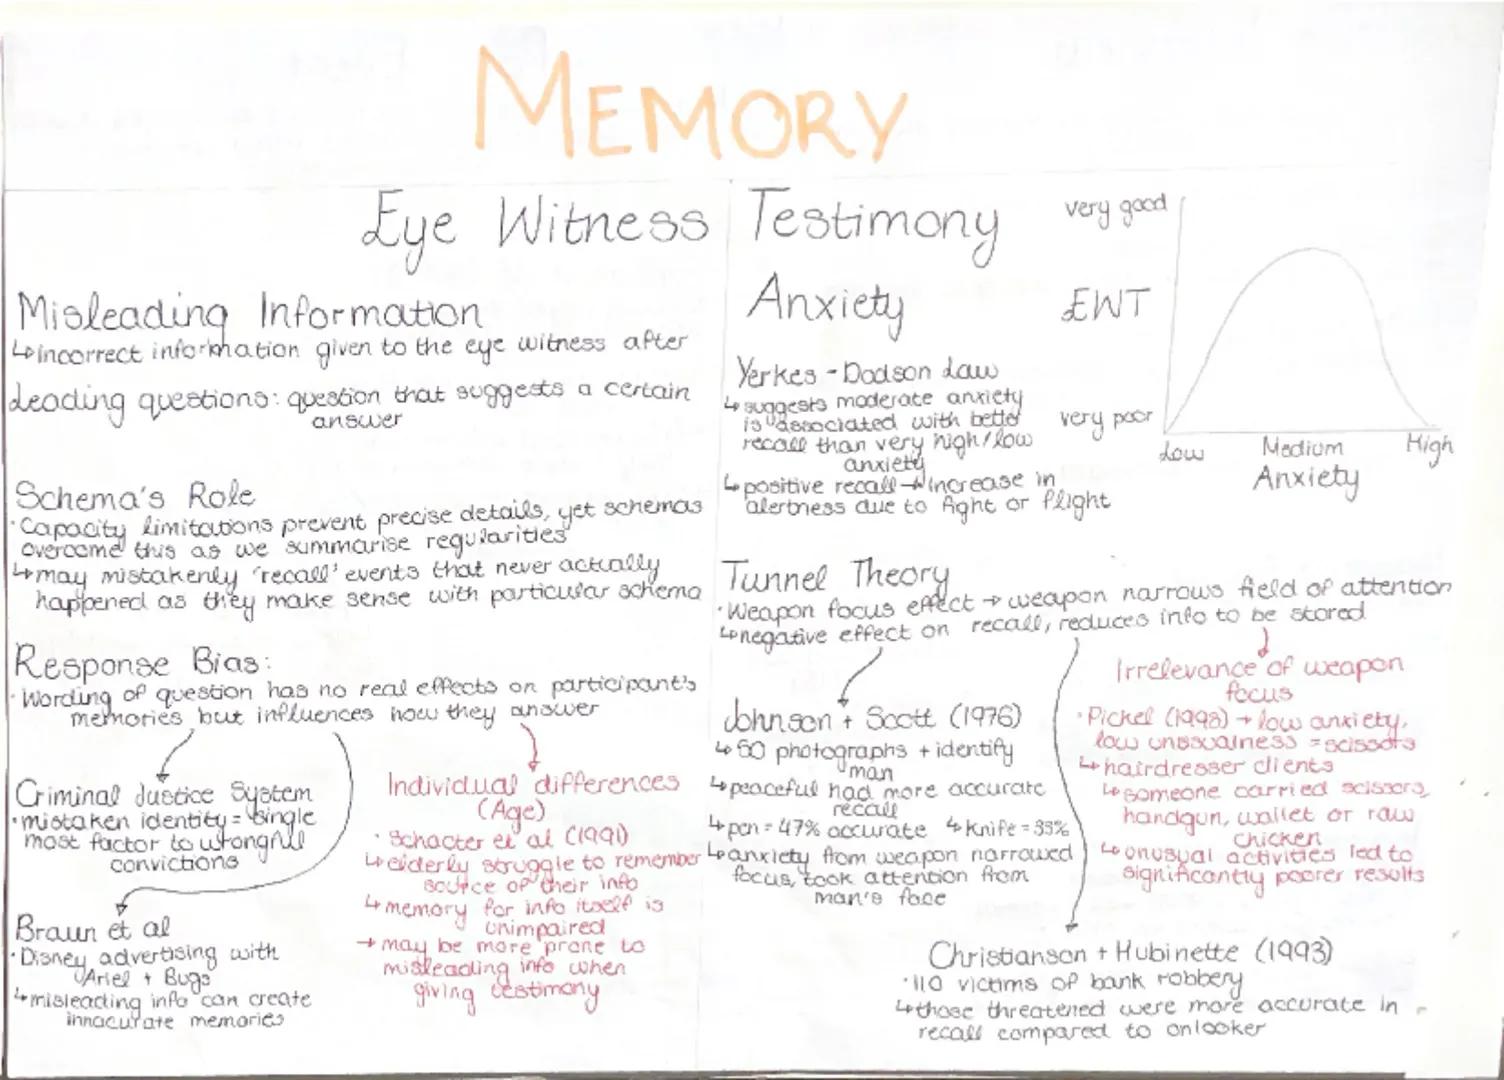 MEMORY
Eye Witness Testimony
Misleading Information
↳incorrect information given to the eye witness after
Leading questions: question that suggests a certain
answer
Schema's Role
·Capacity limitations prevent precise details, yet schemas
overcome this as we summarise regularities
↳may mistakenly 'recall' events that never actually
happened as they make sense with particular schema
Response Bias:
·Wording of question has no real effects on participant's
memories but influences how they answer
Criminal Justice System
·mistaken identity = single
most factor to wrongful
convictions
Braun et al
·Disney advertising with
Ariel + Bugs
↳misleading info can create
innacurate memories
Individual differences
(Age)
·Schacter et al (1991)
↳elderly struggle to remember
source of their info
↳memory for info itself is
unimpaired
→may be more prone to
misleading info when
giving testimony
Anxiety
Yerkes-Dodson Law
↳suggests moderate anxiety
is associated with better
recall than very high/low
anxiety
↳positive recall→increase in
alertness due to fight or flight
very good
EWT
very poor
Low Medium High
Anxiety
Tunnel Theory
·Weapon focus effect → weapon narrows field of attention
↳negative effect on recall, reduces info to be stored
Johnson + Scott (1976)
↳50 photographs + identify
man
↳peaceful had more accurate
recall
↳pen = 47% accurate ↳knife = 33%
↳anxiety from weapon narrowed
focus, took attention from
man's face
Irrelevance of weapon
focus
·Pickel (1998) → low anxiety,
low unusualness = scissors
↳hairdresser clients
↳someone carried scissors,
handgun, wallet or raw
chicken
↳unusual activities led to
significantly poorer results
Christianson + Hubinette (1993)
·110 victims of bank robbery
↳those threatened were more accurate in
recall compared to onlooker